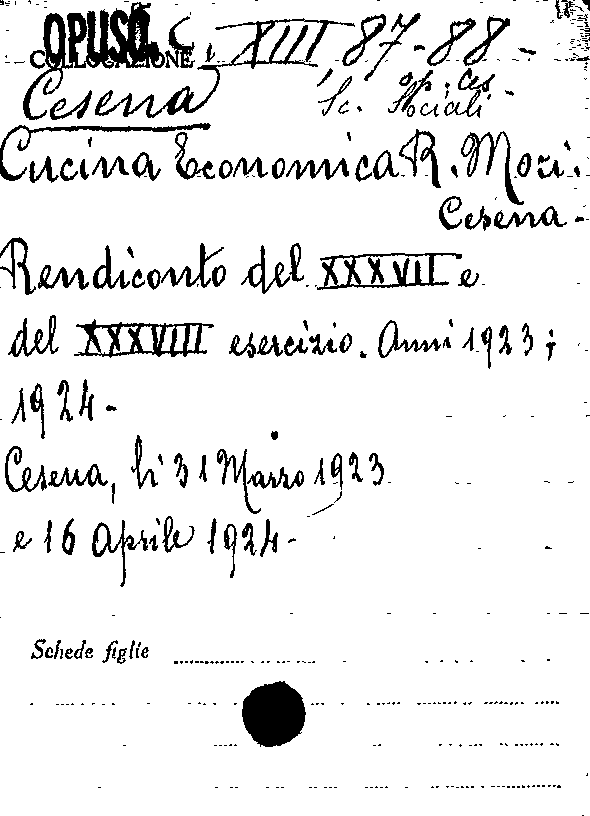 OPUSC. C. XIII, 87-88 -
COLLOCAZIONE
op; ces -
Cesena
Sc. Sociali
Cucina Economica R. Mori.
Cesena -
Rendiconto del XXXVII e
del XXXVIII esercizio. Anni 1923;
1924-
Cesena, li 31 Marzo 1923
e 16 Aprile 1924-
Schede figlie